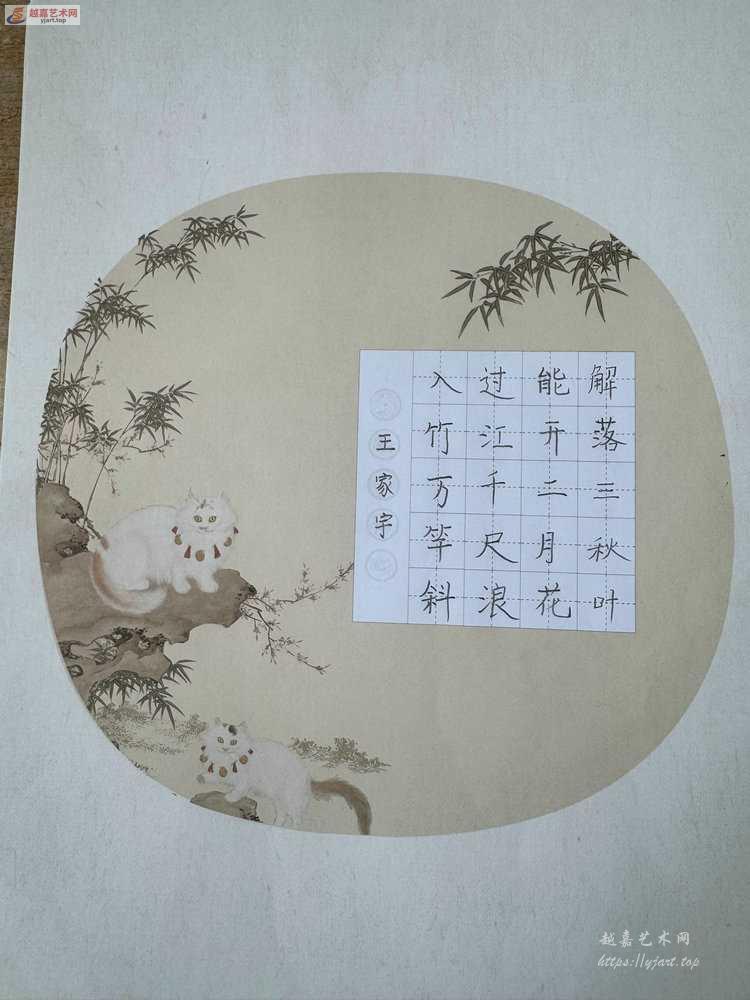 越嘉艺术网
yjart.top
解落三秋叶
能开二月花
过江千尺浪
入竹万竿斜
王家宇
越嘉艺术网
https://yjart.top